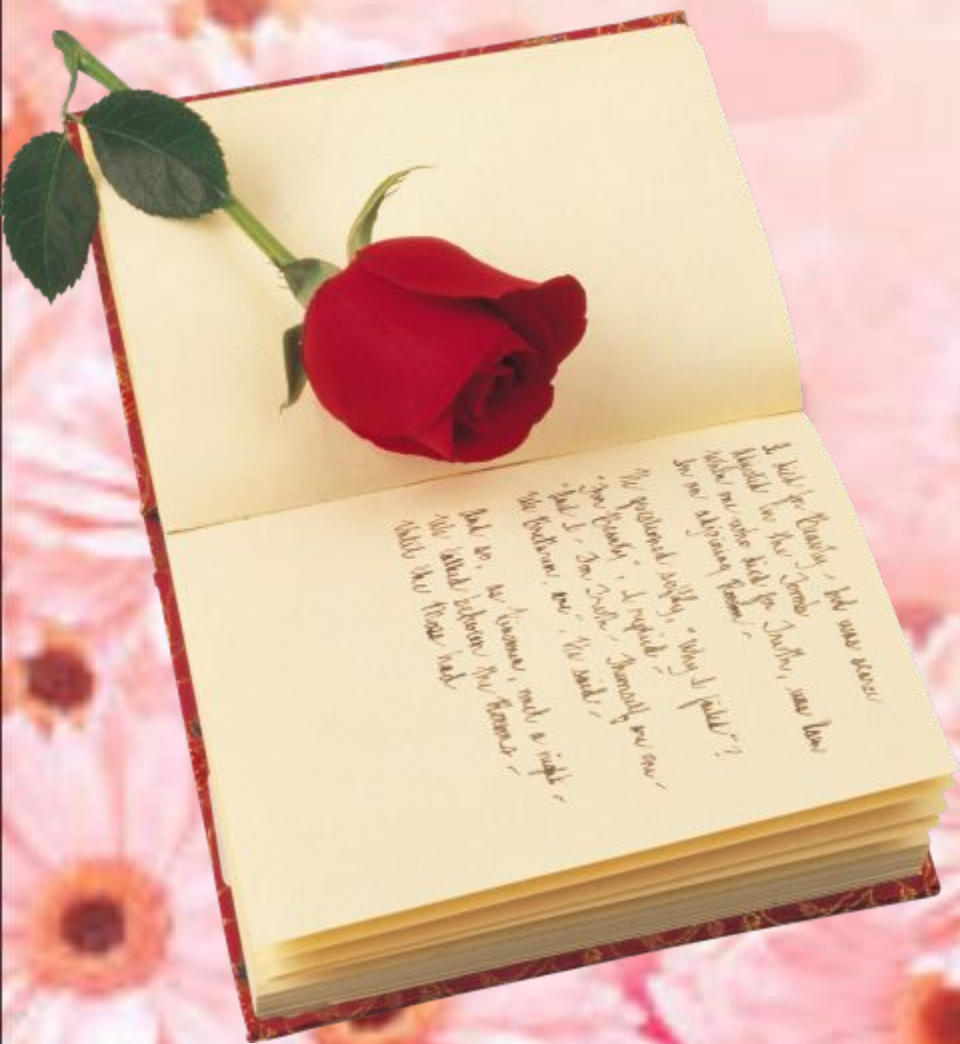 I died for Beauty - but was scarce
Adjusted in the Tomb
When one who died for Truth, was lain
In an adjoining Room -
He questioned softly, "Why I failed"?
"For Beauty", I replied -
"And I - For Truth - Themself are one -
We Brethren, are", He said -
And so, as Kinsmen, met a night -
We talked between the Rooms -
Until the Moss had